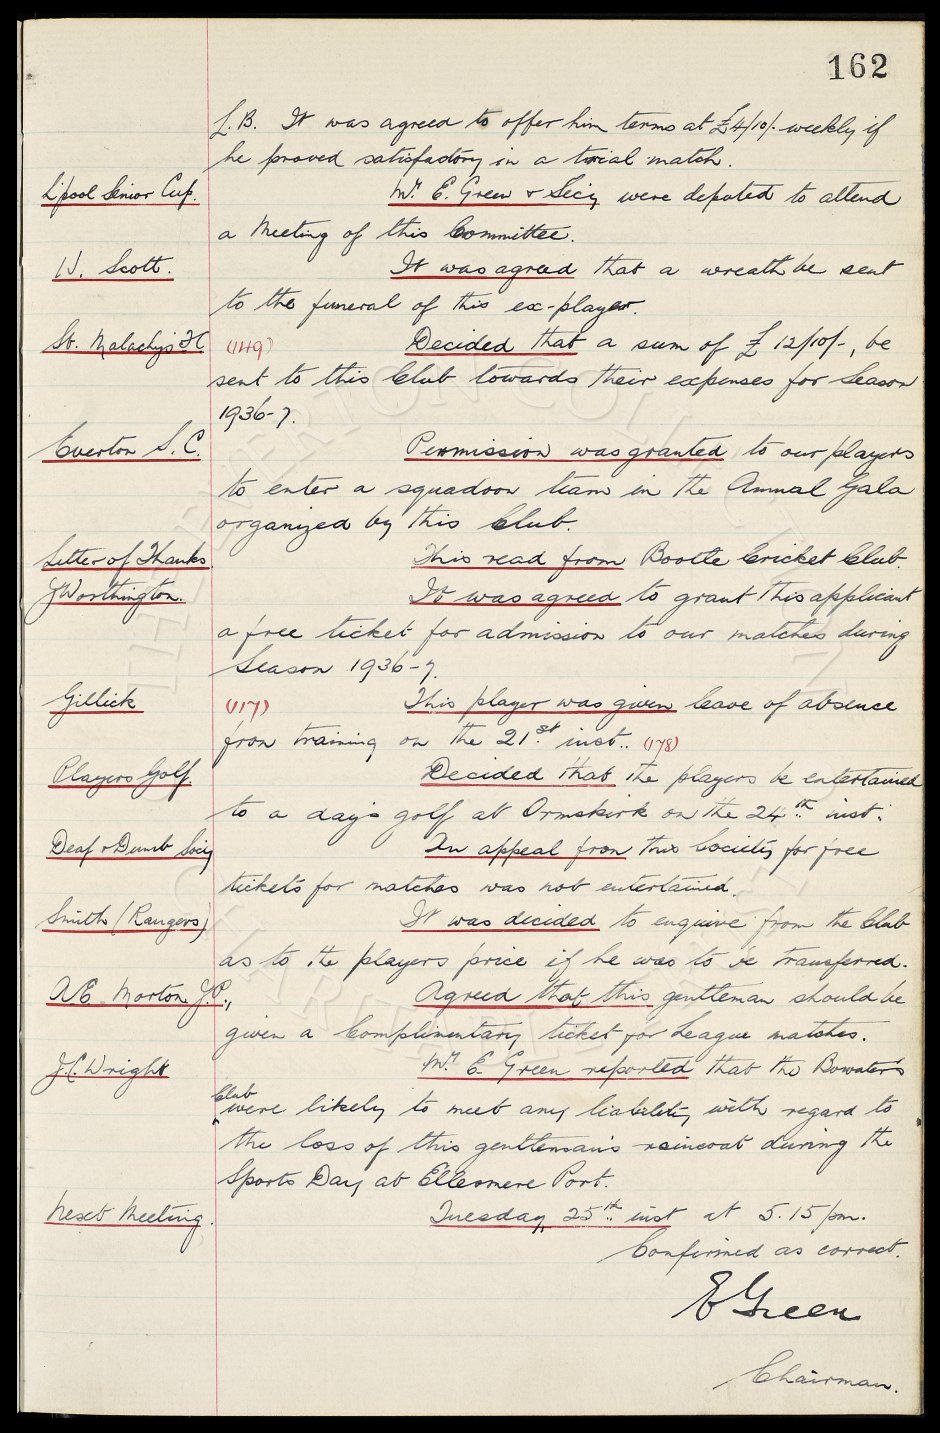 162
L.B. It was agreed to offer him terms at £4/10/- weekly if
he proved satisfactory in a trial match.
L'pool Senior Cup. Mr. E. Green & Secy were deputed to attend
a Meeting of this Committee.
W. Scott. It was agreed that a wreath be sent
to the funeral of this ex-player.
St. Malachy's FC (149) Decided that a sum of £12/10/-, be
sent to this Club towards their expenses for Season
1936-7.
Everton S.C. Permission was granted to our players
to enter a squadron team in the Annual Gala
organized by this Club.
Letter of Thanks This read from Bootle Cricket Club.
J Worthington. It was agreed to grant this applicant
a free ticket for admission to our matches during
Season 1936-7.
Gillick (117) This player was given leave of absence
from training on the 21st. inst.. (178)
Players Golf. Decided that the players be entertained
to a day's golf at Ormskirk on the 24th. inst.
Deaf & Dumb Socy An appeal from this Society for free
tickets for matches was not entertained.
Smith (Rangers) It was decided to enquire from the Club
as to the players price if he was to be transferred.
A.E. Morton J.P., Agreed that this gentleman should be
given a Complimentary ticket for League matches.
J.C. Wright Mr. E. Green reported that the Bowater's
Club
were likely to meet any liability with regard to
the loss of this gentleman's raincoat during the
Sports Day at Ellesmere Port.
Next Meeting. Tuesday, 25th. inst at 5.15 pm.
Confirmed as correct.
E Green
Chairman.
THE EVERTON COLLECTION CHARITABLE TRUST